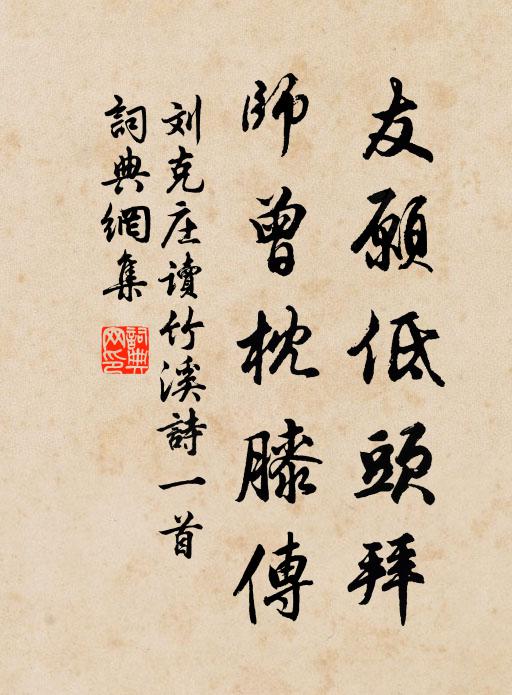 友願低頭拜
師曾枕膝傳
刘克庄讀竹溪詩一首
詞典網集
詞典网印